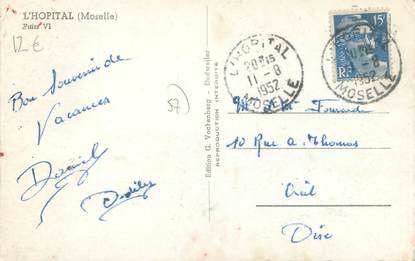 L'HOPITAL (Moselle)
Puits VI
12 €
Bon Souvenir de
Vacances
Daniel
57
Edition G. Vockenberg - Dudweiler
REPRODUCTION INTERDITE
L'HOPITAL
20H15
11-8
1952
MOSELLE
15F
RF
L'HOPITAL
1952
MOSELLE
10 Rue A. Thomas
Creil
Oise